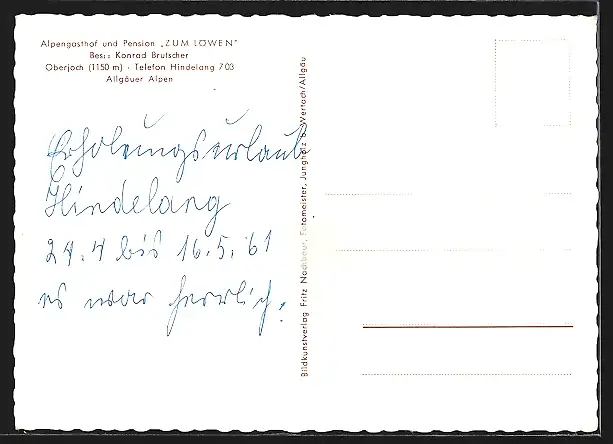 Alpengasthof und Pension „ZUM LÖWEN"
Bes.: Konrad Brutscher
Oberjoch (1150 m) · Telefon Hindelang 703
Allgäuer Alpen
Erholungsurlaub
Hindelang
24.4 bis 16.5.61
es war herrlich!
Bildkunstverlag Fritz Nachbaur, Fotomeister, Jungholz b. Wertach/Allgäu